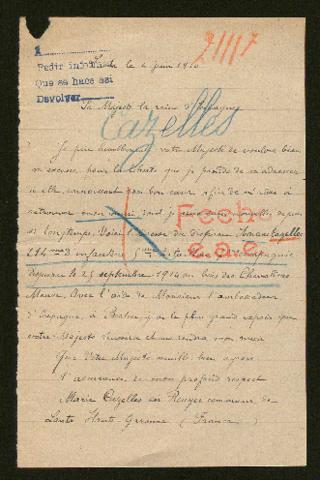 9/1117
A
Pedir informe
Que se hace así
Devolver
le 2 juin 19
Sa Majesté la reine d'Espagne
Cazelles
Je prie humblement votre Majesté de vouloir bien
m'excuser, pour la liberté que je prends de m'adresser
à elle, connaissant son bon cœur afin de m'aider à
retrouver mon mari dont je suis sans nouvelles depuis
si longtemps. Voici l'adresse du disparu Cazelles
214me d'infanterie compagnie
disparu le 25 septembre 1914 au bois des Chevaliers
Meuse. Avec l'aide de Monsieur l'ambassadeur
d'Espagne, à Berlin, j'ai le plus grand espoir que
votre Majesté réussira et me rendra mon mari
Que Votre Majesté veuille bien agréer
l'assurance de mon profond respect
Marie Cazelles commune de
Haute Garonne (France)
Fech
e.a.e.